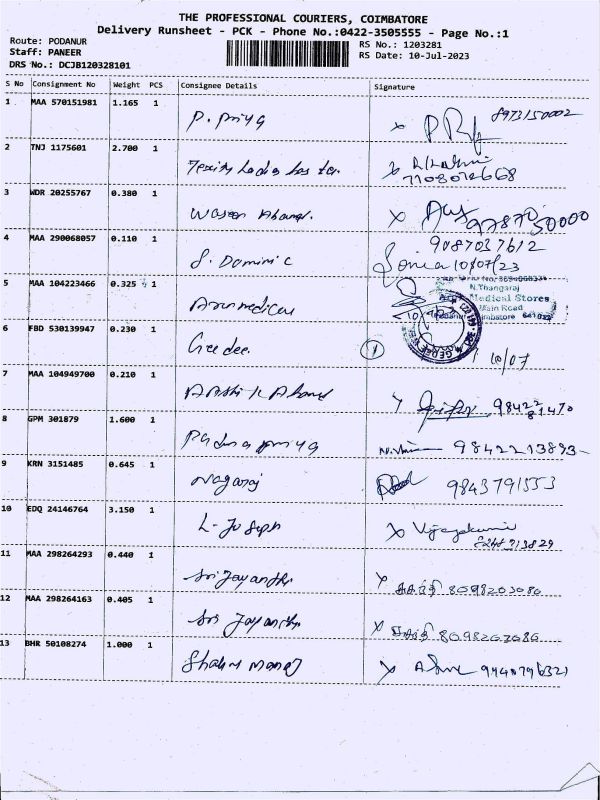 THE PROFESSIONAL COURIERS, COIMBATORE
Delivery Runsheet - PCK - Phone No.:0422-3505555 - Page No.:1
Route: PODANUR
Staff: PANEER
DRS No.: DCJB120328101
RS No.: 1203281
RS Date: 10-Jul-2023
S No Consignment No Weight PCS Consignee Details Signature
1 MAA 570151981 1.165 1 P. Priya 8973150002
2 TNJ 1175601 2.700 1
3 WDR 20255767 0.380 1 9787050000
4 MAA 290068057 0.110 1 S. Dominic 9087037612
Sonia 10/07/23
5 MAA 104223466 0.325 1 Arun medical
N.Thangaraj
Medical Stores
Main Road
6 FBD 530139947 0.230 1 Geedee. 1 10/07
7 MAA 104949700 0.210 1
8 GPM 301879 1.600 1 Padma priya 9842213893
9 KRN 3151485 0.645 1 Nagaraj 9843791553
10 EDQ 24146764 3.150 1 L. Joseph
11 MAA 298264293 0.440 1 Sri Jayanthi 8098203080
12 MAA 298264163 0.405 1 Sri Jayanthi 8098203080
13 BHR 50108274 1.000 1